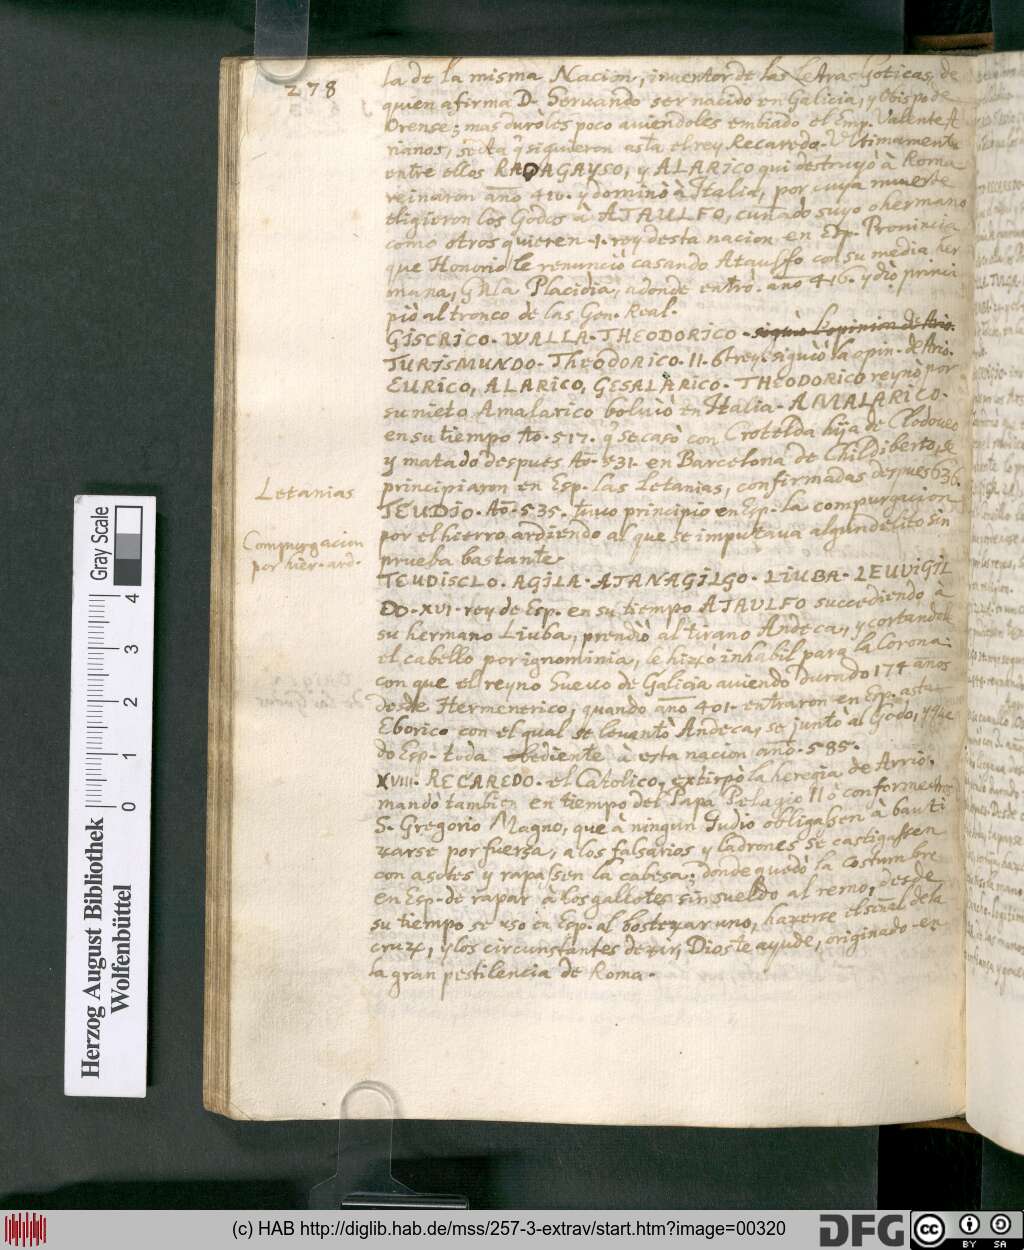 278
la de la misma Nacion, inventor de las Letras Goticas, de
quien afirma D. Servando ser nacido en Galicia, y Obispo de
Orense; mas duròles poco aviendoles embiado el Emp. Valente A
rianos, secta q̃ siguieron asta el rey Recaredo. Ultimamente
entre ellos RADAGAYSO, y ALARICO qui destruyò à Roma
reinaron año 410. y dominò à Italia, por cuya muerte
eligieron los Godos à ATAULFO, cuñado suyo o hermano
como otros quieren .1. rey desta nacion en Esp. Provincia
que Honorio le renunciò casando Ataulfo con su media her
mana, Placidia, adonde entrò año 416. y diò princi
piò al tronco de las Gen. Real.
GISCRICO. WALLA. THEODORICO.
TURISMUNDO. Theodorico. II. 6 rey siguiò la opin. de Ario.
EURICO, ALARICO, GESALARICO. THEODORICO reynò por
su nieto Amalarico bolviò en Italia. AMALARICO.
en su tiempo Aō. 517. q̃ se casò con Crotelda hija de Clodoveo
y matado despues Aō. 531. en Barcelona de Childiberto, se
principiaron en Esp. las Letanias, confirmadas despues 636.
TEUDIO. Aō. 535. tuvo principio en Esp. la compurgacion
por el hierro ardiendo al que se imputava algun delito sin
prueba bastante.
Letanias
Compurgacion
por hier. ard.
TEUDISCLO. AGILA. ATANAGILGO. LIUBA. LEUVIGIL
DO. XVI. rey de Esp. en su tiempo ATAULFO succediendo à
su hermano Liuba, prendiò al tirano Andeca, y cortandole
el cabello por ignominia, le hizo inhabil para la Corona:
con que el reyno Suevo de Galicia aviendo durado 174 años
desde Hermenerico, quando año 401. entraron en Esp. asta
Eborico con el qual se levantò Andeca, se juntò al Godo,
do Esp. toda obediente à esta nacion año. 585.
XVIII. RECAREDO. el Catolico, extirpò la heregia de Arrio.
mandò tambien en tiempo del Papa Pelagio II conforme
S. Gregorio Magno, que à ningun Judio obligassen à bauti
zarse por fuerza, a los falsarios y ladrones se castigassen
con asotes y rapassen la cabesa: donde quedò la costumbre
en Esp. de rapar à los gallotes sin sueldo al remo, desde
su tiempo se uso en Esp. al bostezar uno, hazerse el señal de la
cruz, y los circunstantes dezir, Dios te ayude, originado en
la gran pestilencia de Roma.
Herzog August Bibliothek
Wolfenbüttel
Gray Scale
0 1 2 3 4
(c) HAB http://diglib.hab.de/mss/257-3-extrav/start.htm?image=00320
DFG
cc BY SA